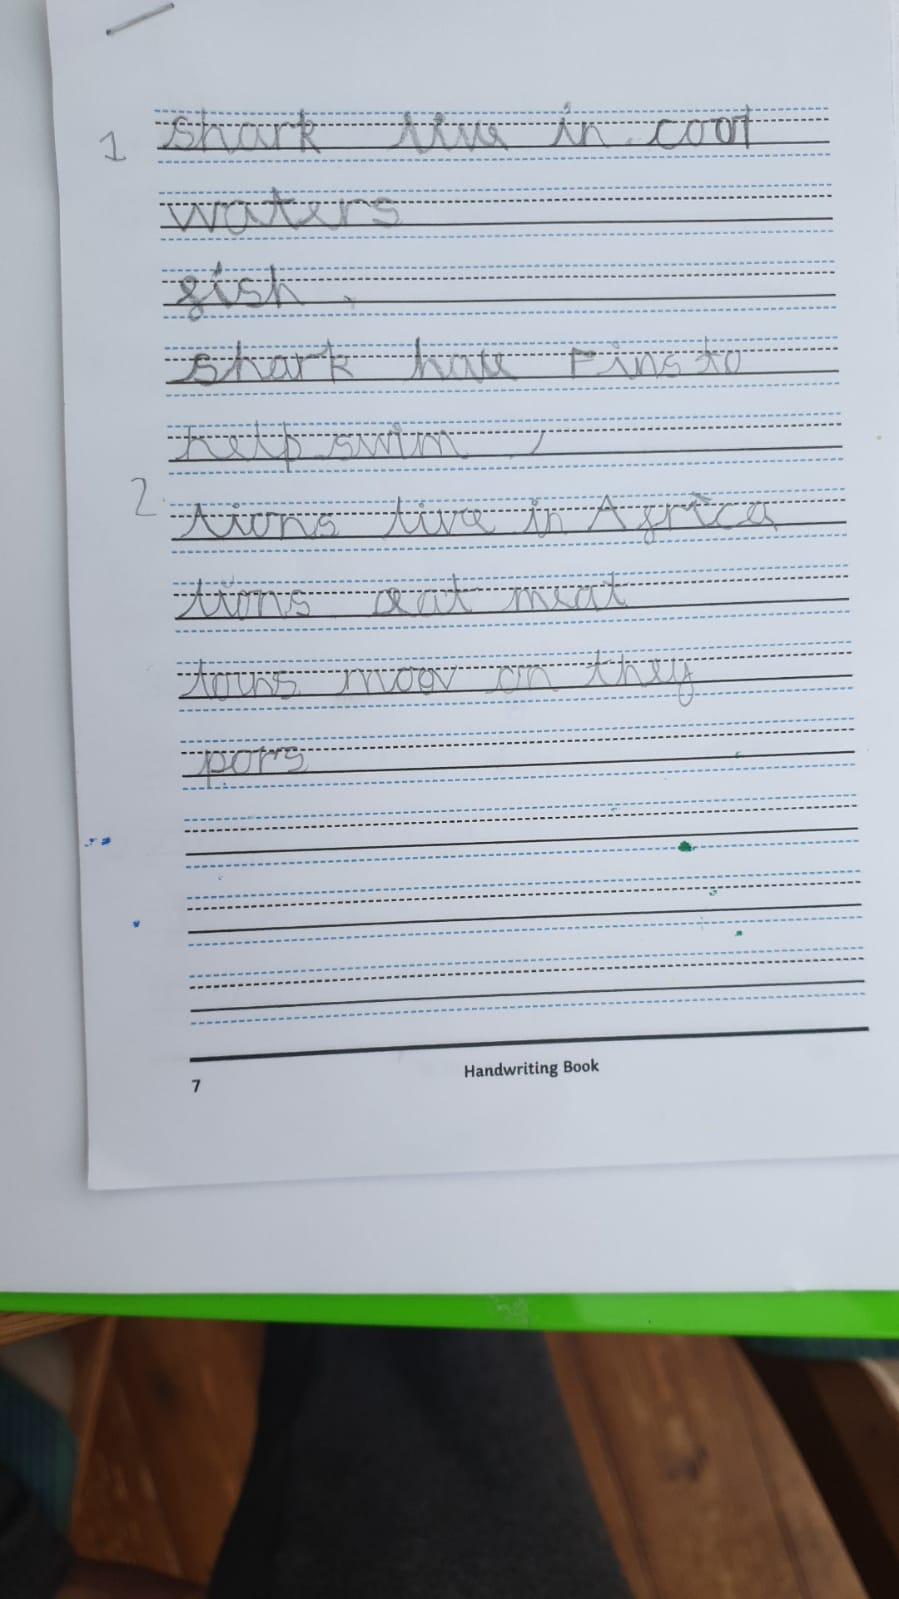 1 shark live in cool
waters
fish .
shark have Fins to
help swim ,
2 lions live in Africa
lions eat meat
loins moov on they
pors
7 Handwriting Book